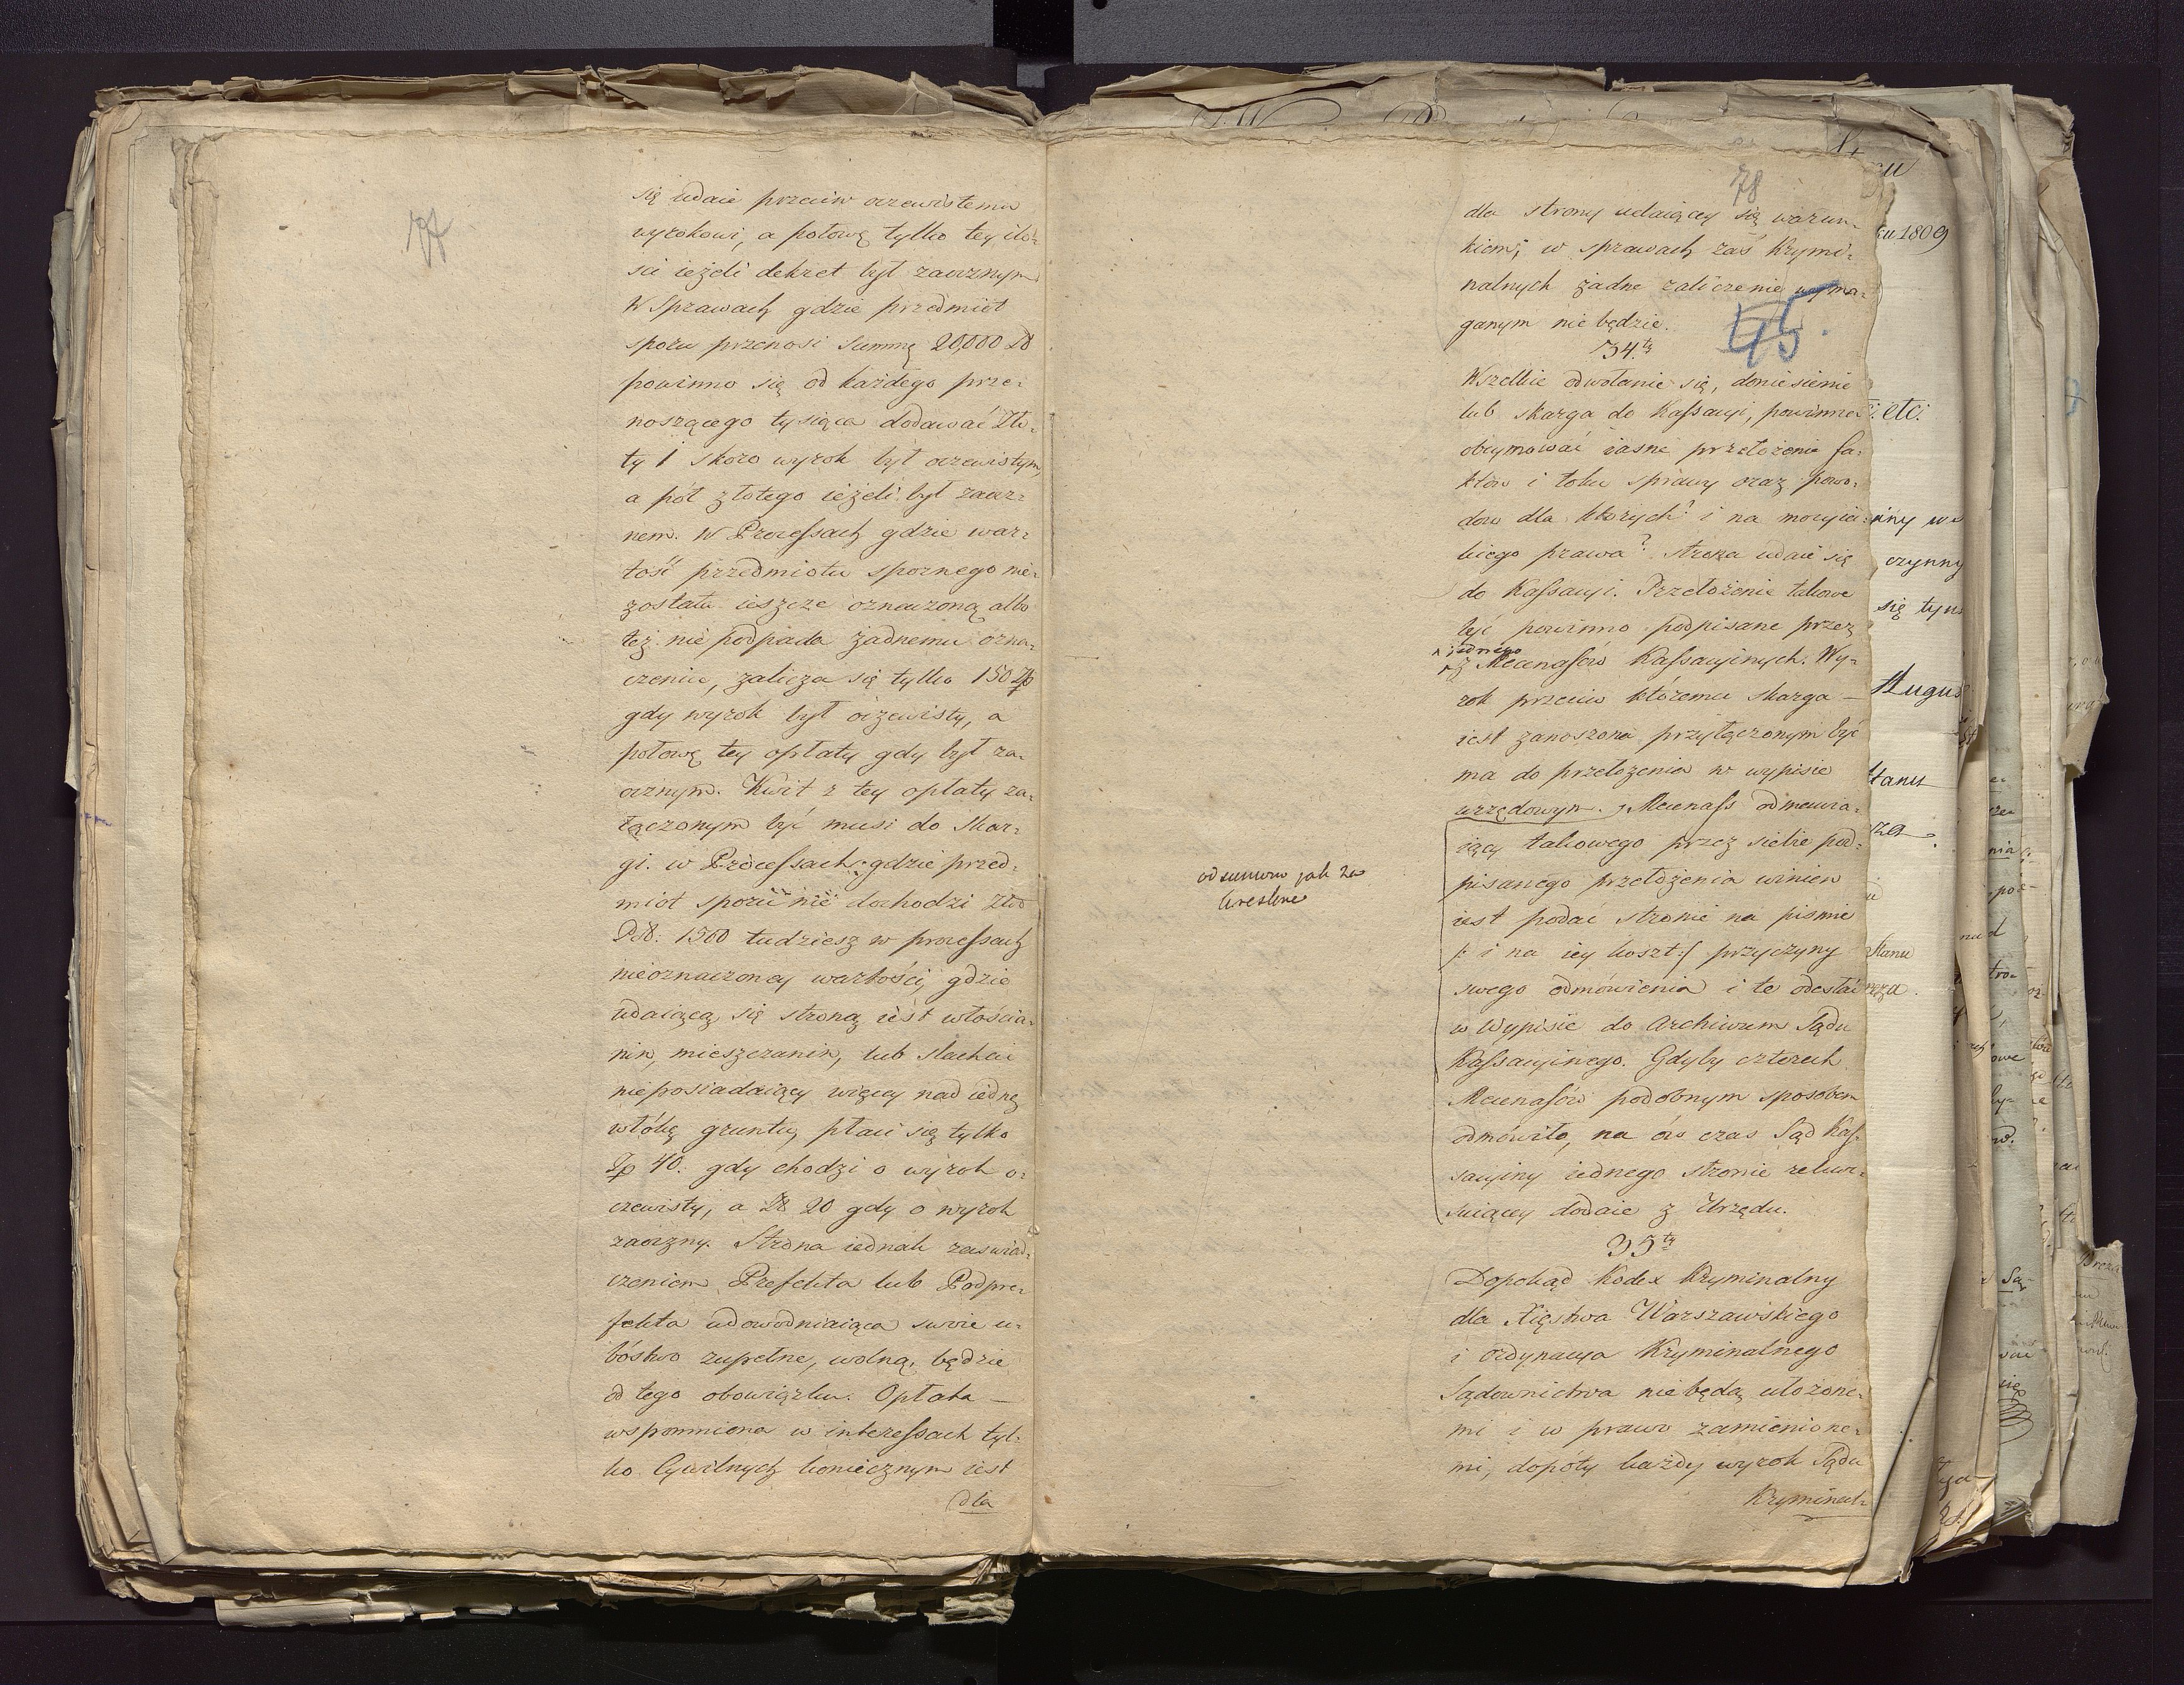 77
się udaie przeciw oczewistemu
wyrokowi, a połowę tylko tey ilo-
sci ieżeli dekret był zaocznym
W Sprawach gdzie przedmiot
sporu przenosi Summę 20,000 Zł
powinno się od każdego prze-
noszącego tysiąca dodawać Zło-
ty 1 skoro wyrok był oczewistym,
a pół złotego ieżeli był zaocz-
nem. W Processach gdzie war-
tość przedmiotu spornego nie-
została ieszcze oznaczoną albo
też nie podpada żadnemu ozna-
czeniu, zalicza się tylko 150 Zp
gdy wyrok był oczewisty, a
połowę tey opłaty gdy był za-
ocznym. Kwit z tey opłaty za-
łączonym być musi do skar-
gi. w Processach gdzie przed-
miot sporu nie dochodzi Złot
Pol: 1500 tudziesz w processach
nieoznaczoney wartości, gdzie
udaiącą się stroną iest włościa-
nin, mieszczanin, lub slachcic
nieposiadaiący więcey nad iednę
włókę gruntu, płaci się tylko
Zp 40. gdy chodzi o wyrok o-
czewisty, a Zł 20 gdy o wyrok
zaoczny. Strona iednak zaswiad-
czeniem Prefekta lub Podpre-
fekta udowodniaiąca swoie u-
bóstwo zupełne, wolną będzie
od tego obowiązku. Opłata —
wspomniona w interessach tyl-
ko Cywilnych koniecznym iest
dla
78
dla strony udaiącey się warun-
kiem; w sprawach zaś Krymi-
nalnych żadne zaliczenie wyma-
ganym nie będzie.
45.
34.ty
Wszelkie odwołanie się, doniesienie
lub skarga do Kassacyi, powinna
obeymować iasne przełożenie fa-
któw i toku sprawy oraz powo-
dow dla których? i na mocy ia-
kiego prawa? strona udaie się
do Kassacyi. Przełożenie takowe
być powinno podpisane przez
iednego
z Mecenasów Kassacyinych. Wy-
rok przeciw któremu skarga —
iest zanoszona przyłączonym być
ma do przełożenia w wypisie
urzędowym. Mecenass odmawia-
iący takowego przez siebie pod-
pisanego przełożenia winien
iest podać stronie na pismie
/: i na iey koszt :/ przyczyny
swego odmówienia i te odesłać
w Wypisie do Archiwum Sądu
Kassacyinego. Gdyby czterech
Mecenasów podobnym sposobem
odmówiło, na ów czas Sąd Kas-
sacyiny iednego stronie rekur-
suiącey dodaie z Urzędu.
35ty
Dopokąd Kodex Kryminalny
dla Xięstwa Warszawskiego
i Ordynacya Kryminalnego
Sądownictwa nie będą ułożone-
mi i w prawo zamienione-
mi, dopóty każdy wyrok Sądu
Kryminal-
od sumw jak za
kreslne
ku 1809
etc.
czynny
się tym
August
Stanu
Stanu